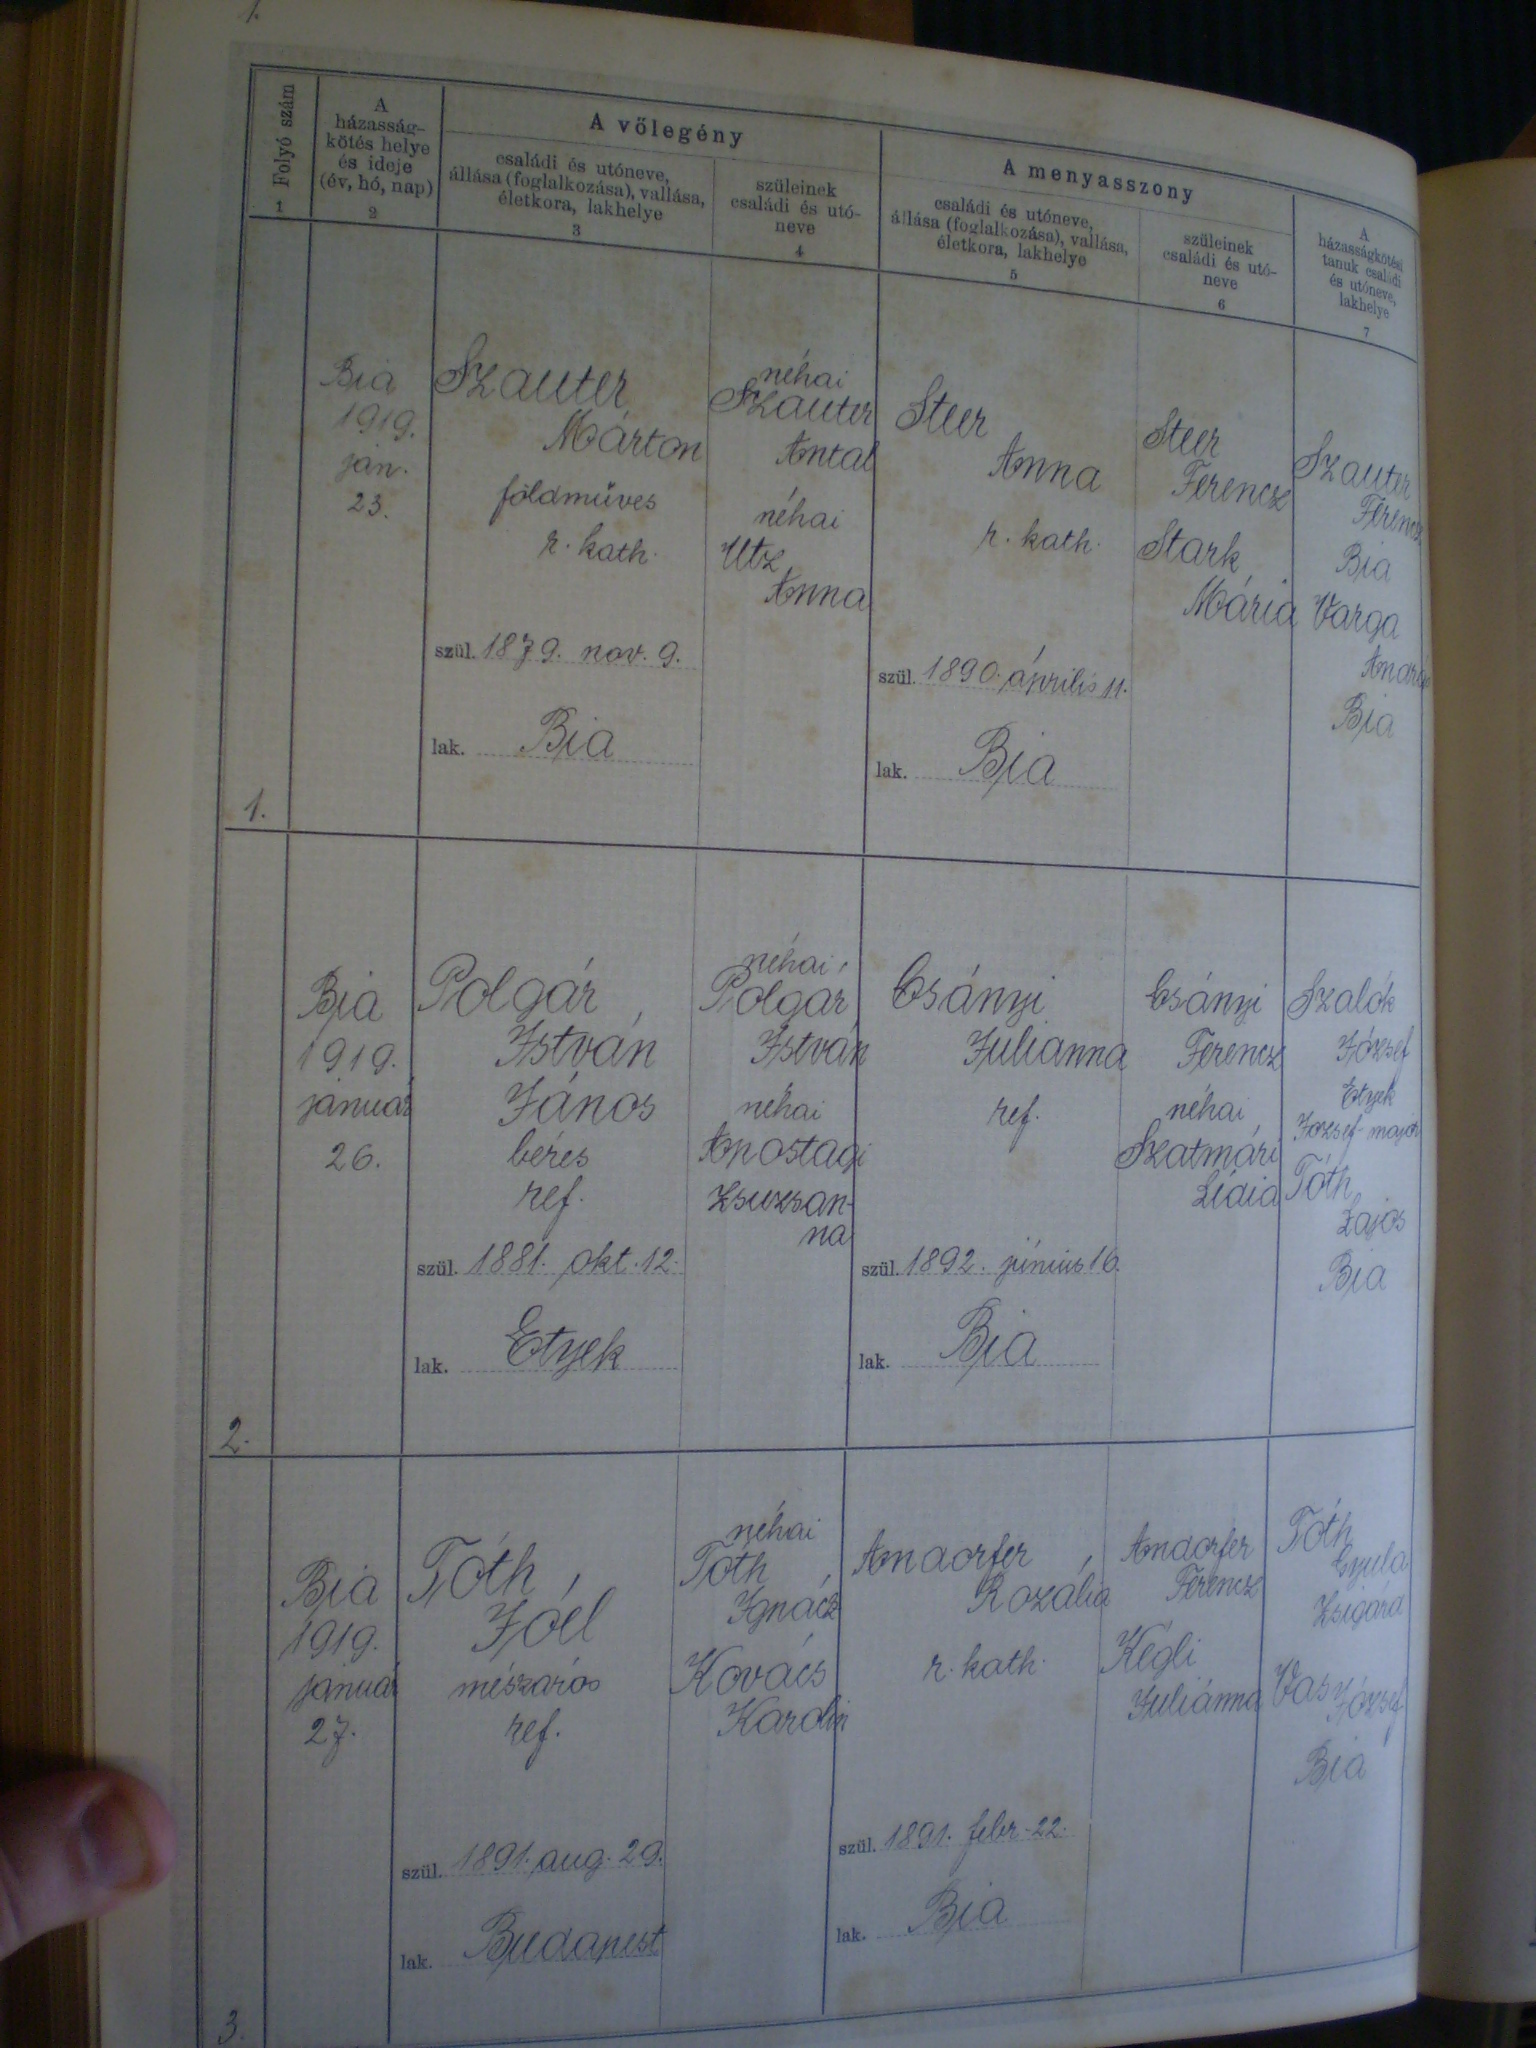 1.
Folyó szám
1
A
házasság-
kötés helye
és ideje
(év, hó, nap)
2
A vőlegény
családi és utóneve,
állása (foglalkozása), vallása,
életkora, lakhelye
3
szüleinek
családi és utó-
neve
4
A menyasszony
családi és utóneve,
állása (foglalkozása), vallása,
életkora, lakhelye
5
szüleinek
családi és utó-
neve
6
A
házasságkötési
tanuk családi
és utóneve,
lakhelye
7
1.
Bia
1919.
jan.
23.
Szauter
Márton
földműves
r. kath.
szül. 1879. nov. 9.
lak. Bia
néhai
Szauter
Antal
néhai
Utz
Anna
Steer
Anna
r. kath.
szül. 1890. április 11.
lak. Bia
Steer
Ferencz
Stark
Mária
Szauter
Ferencz
Bia
Varga
András
Bia
2.
Bia
1919.
január
26.
Polgár
István
János
béres
ref.
szül. 1881. okt. 12.
lak. Etyek
néhai
Polgár
István
néhai
Apostagi
Zsuzsan-
na
Csányi
Julianna
ref.
szül. 1892. június 16.
lak. Bia
Csányi
Ferencz
néhai
Szatmári
Lidia
Szalók
József
Etyek
József-major
Tóth
Lajos
Bia
3.
Bia
1919.
január
27.
Tóth
Jóel
mészáros
ref.
szül. 1891. aug. 29.
lak. Budapest
néhai
Tóth
Ignácz
Kovács
Karolin
Amdorfer
Rozália
r. kath.
szül. 1891. febr. 22.
lak. Bia
Amdorfer
Ferencz
Kégli
Juliánna
Tóth
Gyula
Zsigárd
Vas
József
Bia